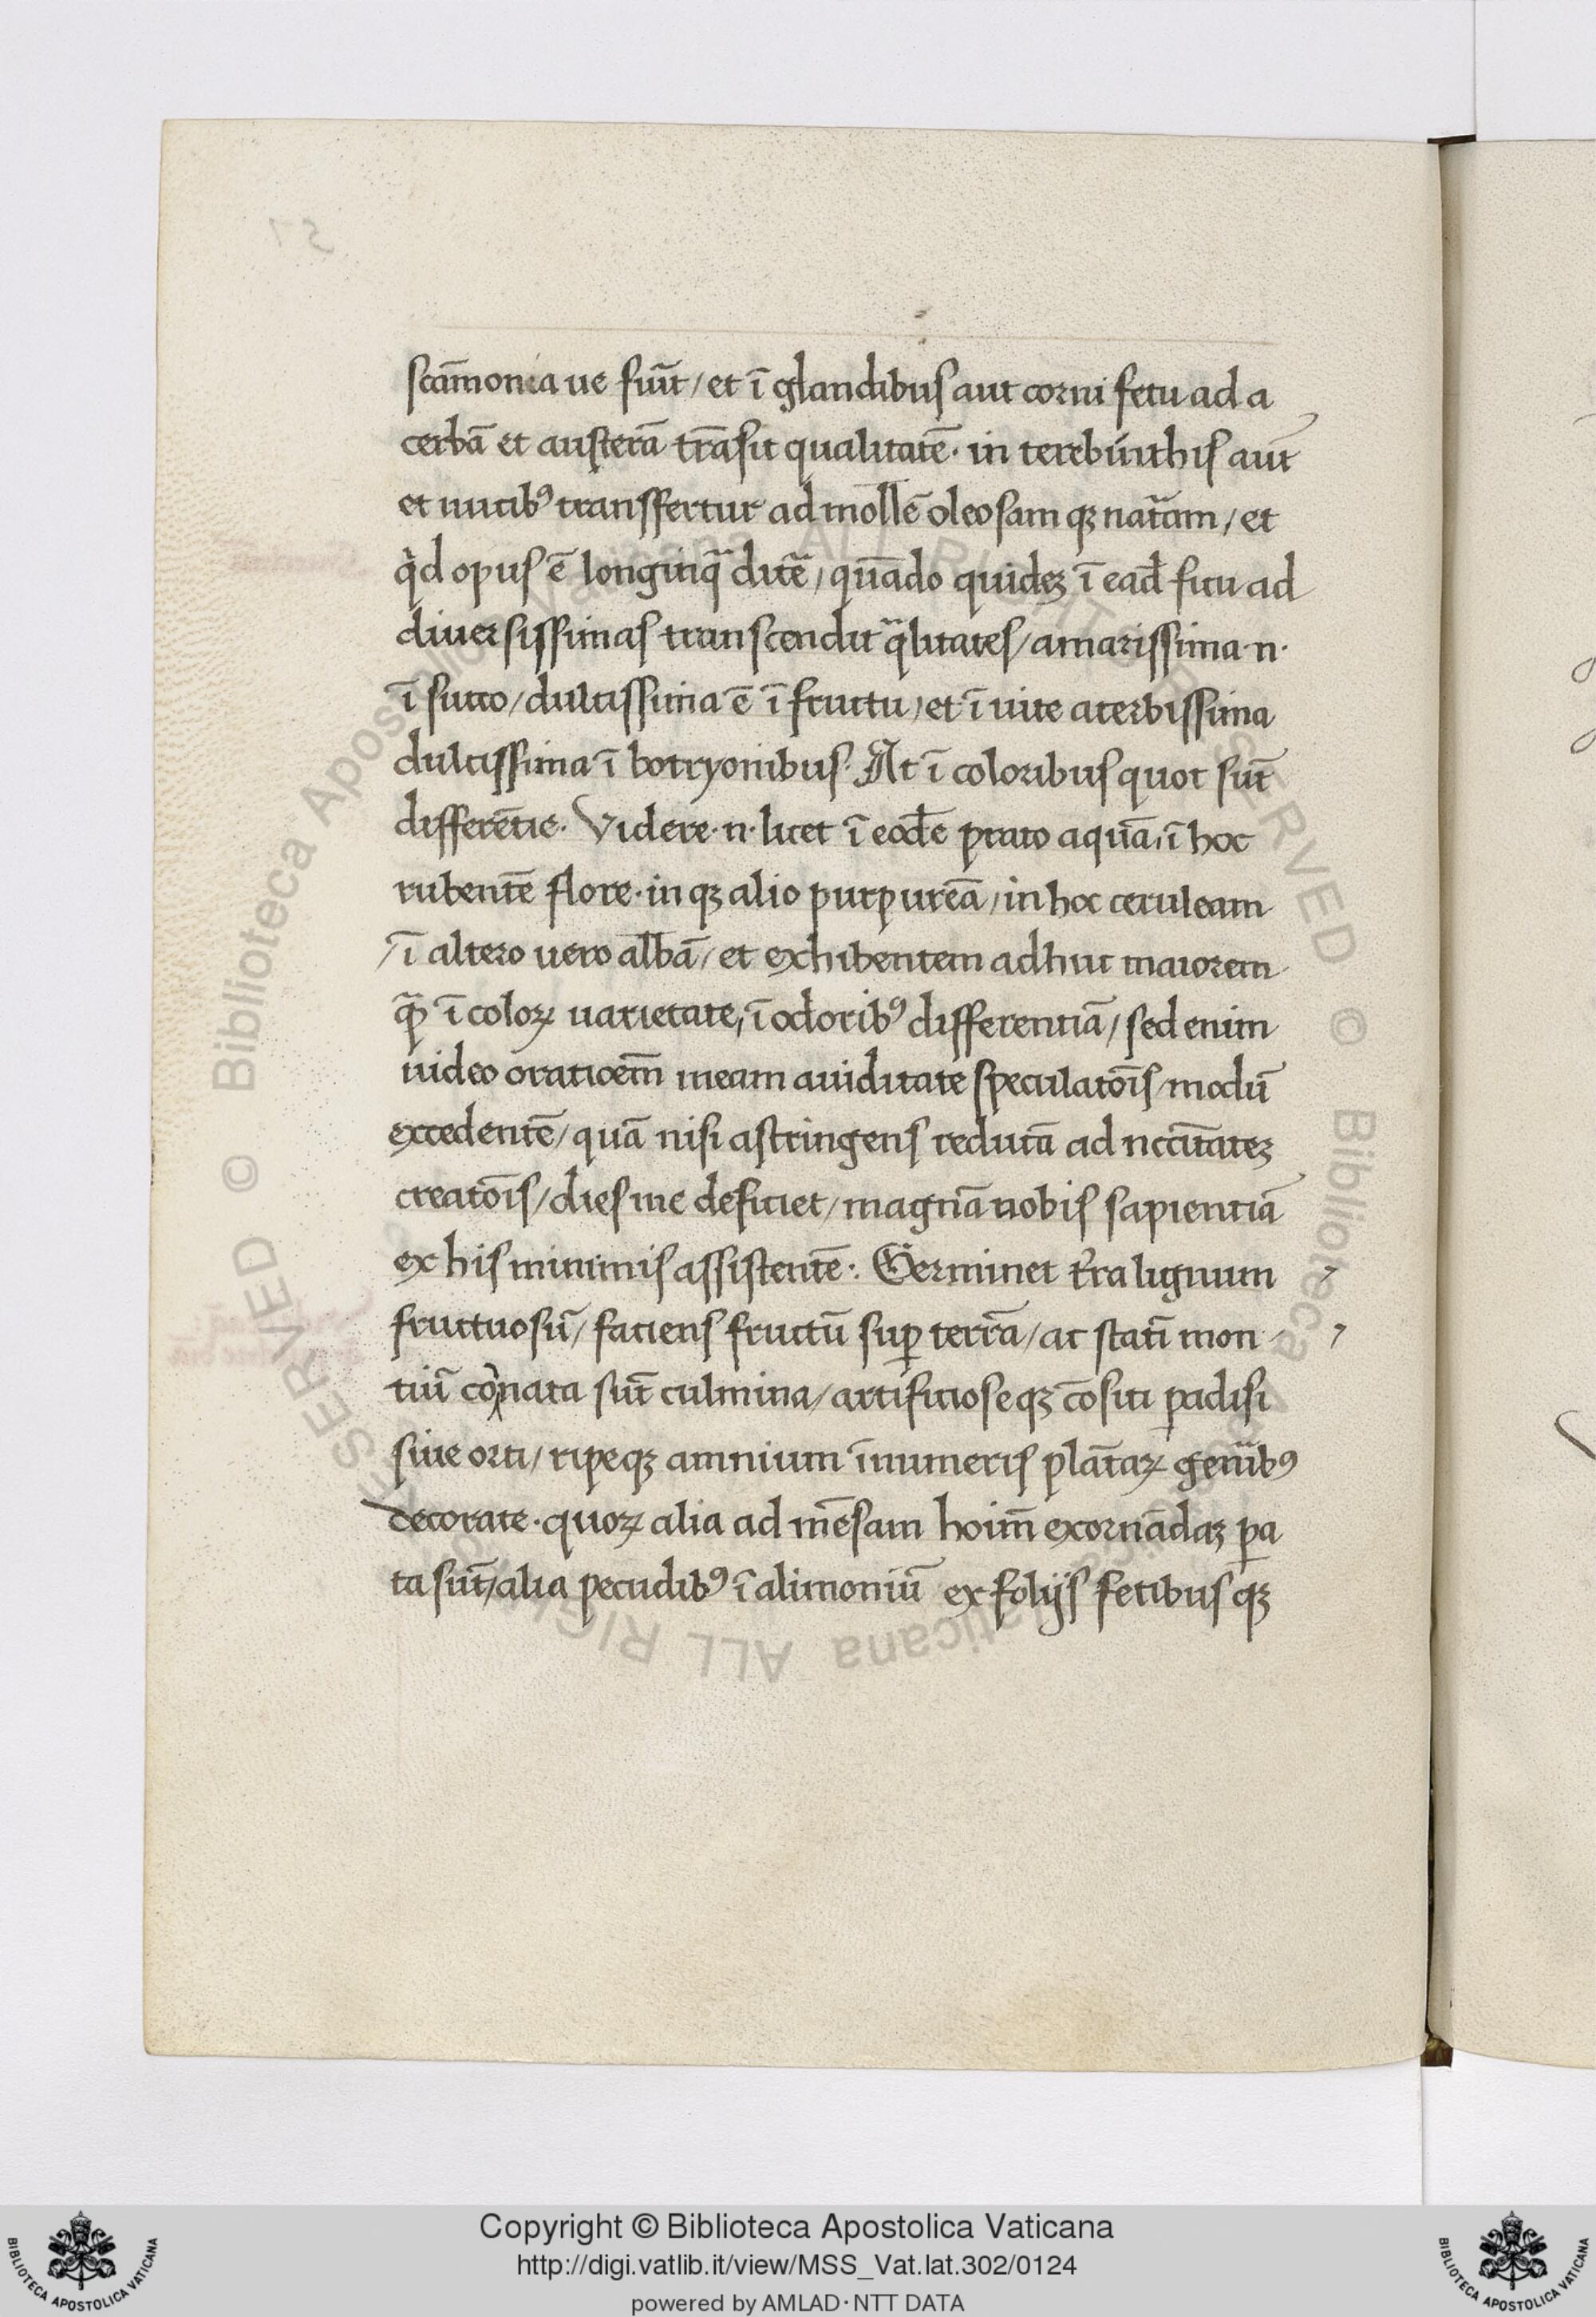 scāmonia ue fiūt / et ī glandibus aut corni fetu ad a
cerbā et austerā trāsit qualitatē · in terebinthis aūt
et nucibꝰ transffertur ad mollē oleosam qꝫ nat̄am / et
qͥd opus ē longitiq̄ dūtē / quādo quideꝫ ī ead̄ ficu ad
diuersissimas transcendit q̄litates / amarissima · n ·
ī succo / dulcissima ē ī fructu / et ī uite acerbissima
dulcissima ī botryonibus · At ī coloribus quot sūt
differētie · Videre · n · licet ī eod̄e prato aquā / ī hoc
rubentē flore · in qꝫ alio purpureā / in hoc ceruleam
/ ī altero uero albā / et exhibentem adhuc maiorem
qᷓꝫ ī coloꝝ uarietate / ī odoribꝰ differentiā / sed enim
uideo oratioem̄ meam auiditate speculatōis / modū
excedentē / quā nisi astringens reducā ad nccitateꝫ
creatōis / dies me deficiet / magnā nobis sapientiā
ex his minimis assistentē : Germinet t̄ra lignum
fructuosū / faciens fructū suꝑ terrā / ac statī mon
tiū cōnata sūt culmina / artificioseqꝫ cōsiti ꝑadisi
siue orti / ripeqꝫ amnium īnumeris plātaꝝ genibꝰ
decorate · quoꝝ alia ad mēsam hoim̄ exornādaꝫ ꝑa
ta sūt / alia pecudibꝰ ī alimoniū ex folijs fetibus qꝫ
© Biblioteca Apostolica Vaticana ALL RIGHTS RESERVED
© Biblioteca Apostolica Vaticana ALL RIGHTS RESERVED
Copyright © Biblioteca Apostolica Vaticana
http://digi.vatlib.it/view/MSS_Vat.lat.302/0124
powered by AMLAD · NTT DATA
BIBLIOTECA APOSTOLICA VATICANA
BIBLIOTECA APOSTOLICA VATICANA